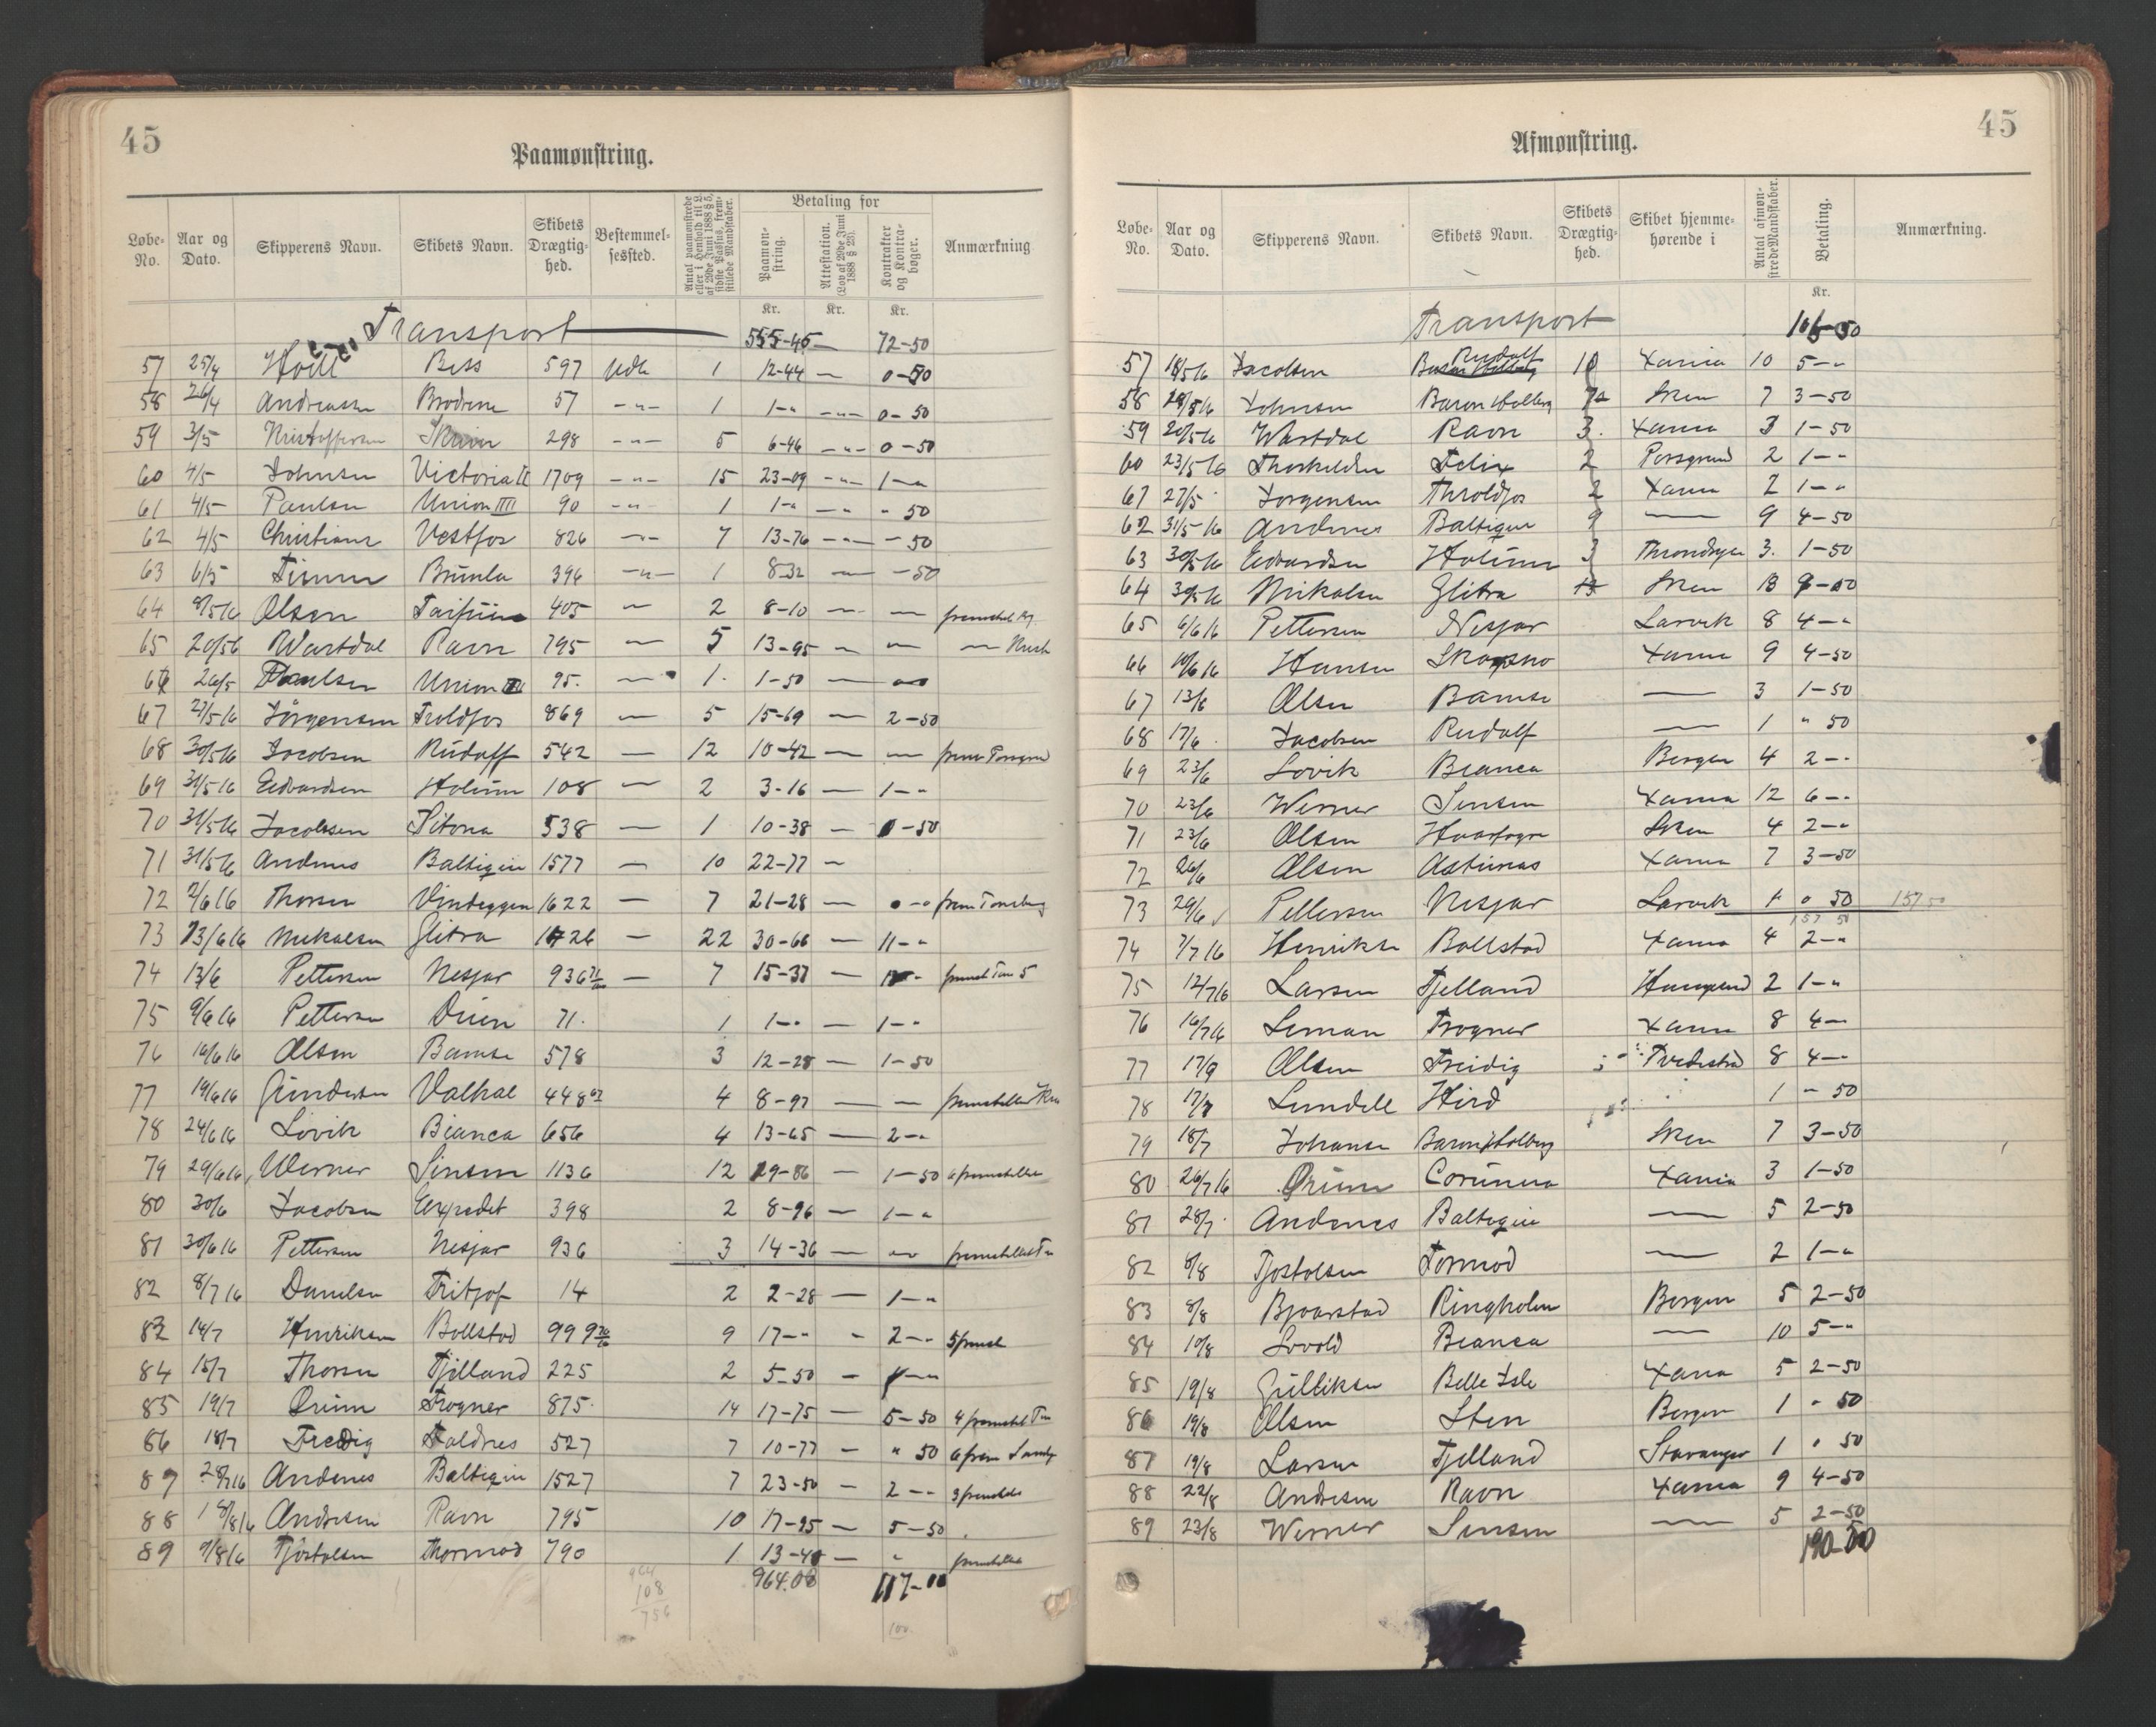 45
Paamønstring.
Løbe-No. Aar og Dato. Skipperens Navn. Skibets Navn. Skibets Drægtig-hed. Bestemmel-sessted. Antal paamønstrede eller i Henhold til L. af 29de Juni 1888 § 5, sidste Passus, frem-stillede Mandskaber. Betaling for Paamøn-string. Attestation. (Lov af 29de Juni 1888 § 26). Kontrakter og Kontra-bøger. Anmærkning
Kr. Kr. Kr.
Transport 555-45 72-50
57 25/4 Bess 597 Udl 1 12-44 — 0-50
58 26/4 Andreassen Brødrene 57 -"- 1 1-" -"- 0-50
59 3/5 Kristoffersen Skrim 298 -"- 5 6-46 -"- 0-50
60 4/5 Johnsen Victoria II 1709 -"- 15 23-09 -"- 1-"
61 4/5 Paulsen Union III 90 -"- 1 1-" -" " 50
62 4/5 Christians Vestfos 826 -"- 7 13-76 -"- - 50
63 6/5 Brunla 396 -"- 1 8-32 — -50
64 8/5 16 Olsen 405 — 2 8-10 — —
65 20/5 16 Wartdal Ravn 795 — 5 13-95 — —
66 26/5 Paulsen Union III 95. — 1. 1-50 —
67 27/5 16 Jørgensen Troldfos 869 — 5 15-69 — 2-50
68 30/5 16 Jacobsen Rudolf 542 — 12 10-42 — — frem Porsgrund
69 31/5 16 Edvardsen Holum 108 — 2 3-16 — 1-"
70 31/5 16 Jacobsen Sitona 538 — 1 10-38 — 0-50
71 31/5 16 Andenes Baltique 1577 — 10 22-77 —
72 2/6 16 Thorsen Vindeggen 1622 — 7 21-28 — frem Tønsberg
73 13/6 16 Mikalsen Glitra 1426 — 22 30-66 — 11-"
74 13/6 Pettersen Nesjar 936 — 7 15-37 —
75 9/6 16 Pettersen Duen 71. 1 1-" — 1-"
76 16/6 16 Olsen Bamse 578 3 12-28 — 1-50
77 19/6 16 Gundersen Valhal 448 4 8-97 — —
78 24/6 16 Lovik Bianca 656 4 13-65 — 2-"
79 29/6 16 Werner Sinsen 1136 12 29-86 — 1-50
80 30/6 Jacobsen Expedit 398 2 8-96 — 1-"
81 30/6 16 Pettersen Nesjar 936 3 14-36 —
82 8/7 16 Danielsen Fritjof 14 2 2-28 — 1-"
83 14/7 Henriksen Bollstad 999 9 17-" " 2-" 5 fremst
84 15/7 Thorsen Fjelland 225 2 5-50 - 1-"
85 19/7 Drum Frogner 875. 14 17-75 — 5-50
86 18/7 Fredig Foldnes 527 7 10-77 - " 50
87 28/7 16 Andenes Baltique 1527 7 23-50 - 2-"
88 18/8 16 Andresen Ravn 795 10 17-95 — 5-50
89 9/8 16 Tjøstolsen Thormod 790 1 13-40 — "
964.08 117-00
964
108
756
100
45
Afmønstring.
Løbe-No. Aar og Dato. Skipperens Navn. Skibets Navn. Skibets Drægtig-hed. Skibet hjemme-hørende i Antal afmøn-strede Mandskaber. Betaling. Anmærkning.
Kr.
Transport 106-50
57 18/5 16 Jacobsen Rudolf 10 Xania 10 5-"
58 20/5 16 Johnsen Baron Holberg 7 Skien 7 3-50
59 20/5 16 Wartdal Ravn 3. Xania 3 1-50
60 23/5 16 Thorkildsen Felix 2 Porsgrund 2 1-"
61 27/5 Jørgensen Throldfos 2 Xania 2 1-"
62 31/5 16 Andenes Baltique 9 — 9 4-50
63 30/5 16 Edvardsen Holum 3 Throndhjem 3. 1-50
64 30/5 16 Mikalsen Glitra 13 Skien 13
65 6/6 16 Pettersen Nesjar Larvik 8 4-"
66 10/6 16 Hansen Skogsmo Xania 9 4-50
67 13/6 Olsen Bamse — 3 1-50
68 17/6 Jacobsen Rudolf — 1 " 50
69 23/6 Lovik Bianca Bergen 4 2-"
70 23/6 Werner Sinsen Xania 12 6-"
71 23/6 Olsen Haarfagre Skien 4 2-"
72 26/6 Olsen Asturias Xania 7 3-50
73 29/6 Pettersen Nesjar Larvik 1 0 50 157 50
157 50
74 7/7 16 Henriksen Bollstad Xania 4 2-"
75 12/7 16 Larsen Fjelland Haugesund 2 1-"
76 16/7 16 Leman Frogner Xania 8 4-
77 17/7 Olsen Freidig Tvedestrand 8 4-"
78 17/7 Lundell Hird 1 - 50
79 18/7 Johansen Baron Holberg Skien 7 3-50
80 26/7 16 Drum Corunna Xania 3 1-50
81 28/7 Andenes Baltique — 5 2-50
82 8/8 Tjøstolsen Tormod — 2 1-"
83 8/8 Bjoarstad Ringholm Bergen 5 2-50
84 10/8 Lovold Bianca — 10 5-"
85 19/8 Gulliksen Belle Isle Xania 5 2-50
86 19/8 Olsen Sten Bergen 1 - 50
87 19/8 Larsen Fjelland Stavanger 1 " 50
88 22/8 Andresen Ravn Xania 9 4-50
89 23/8 Werner Sinsen — 5 2-50
190-50